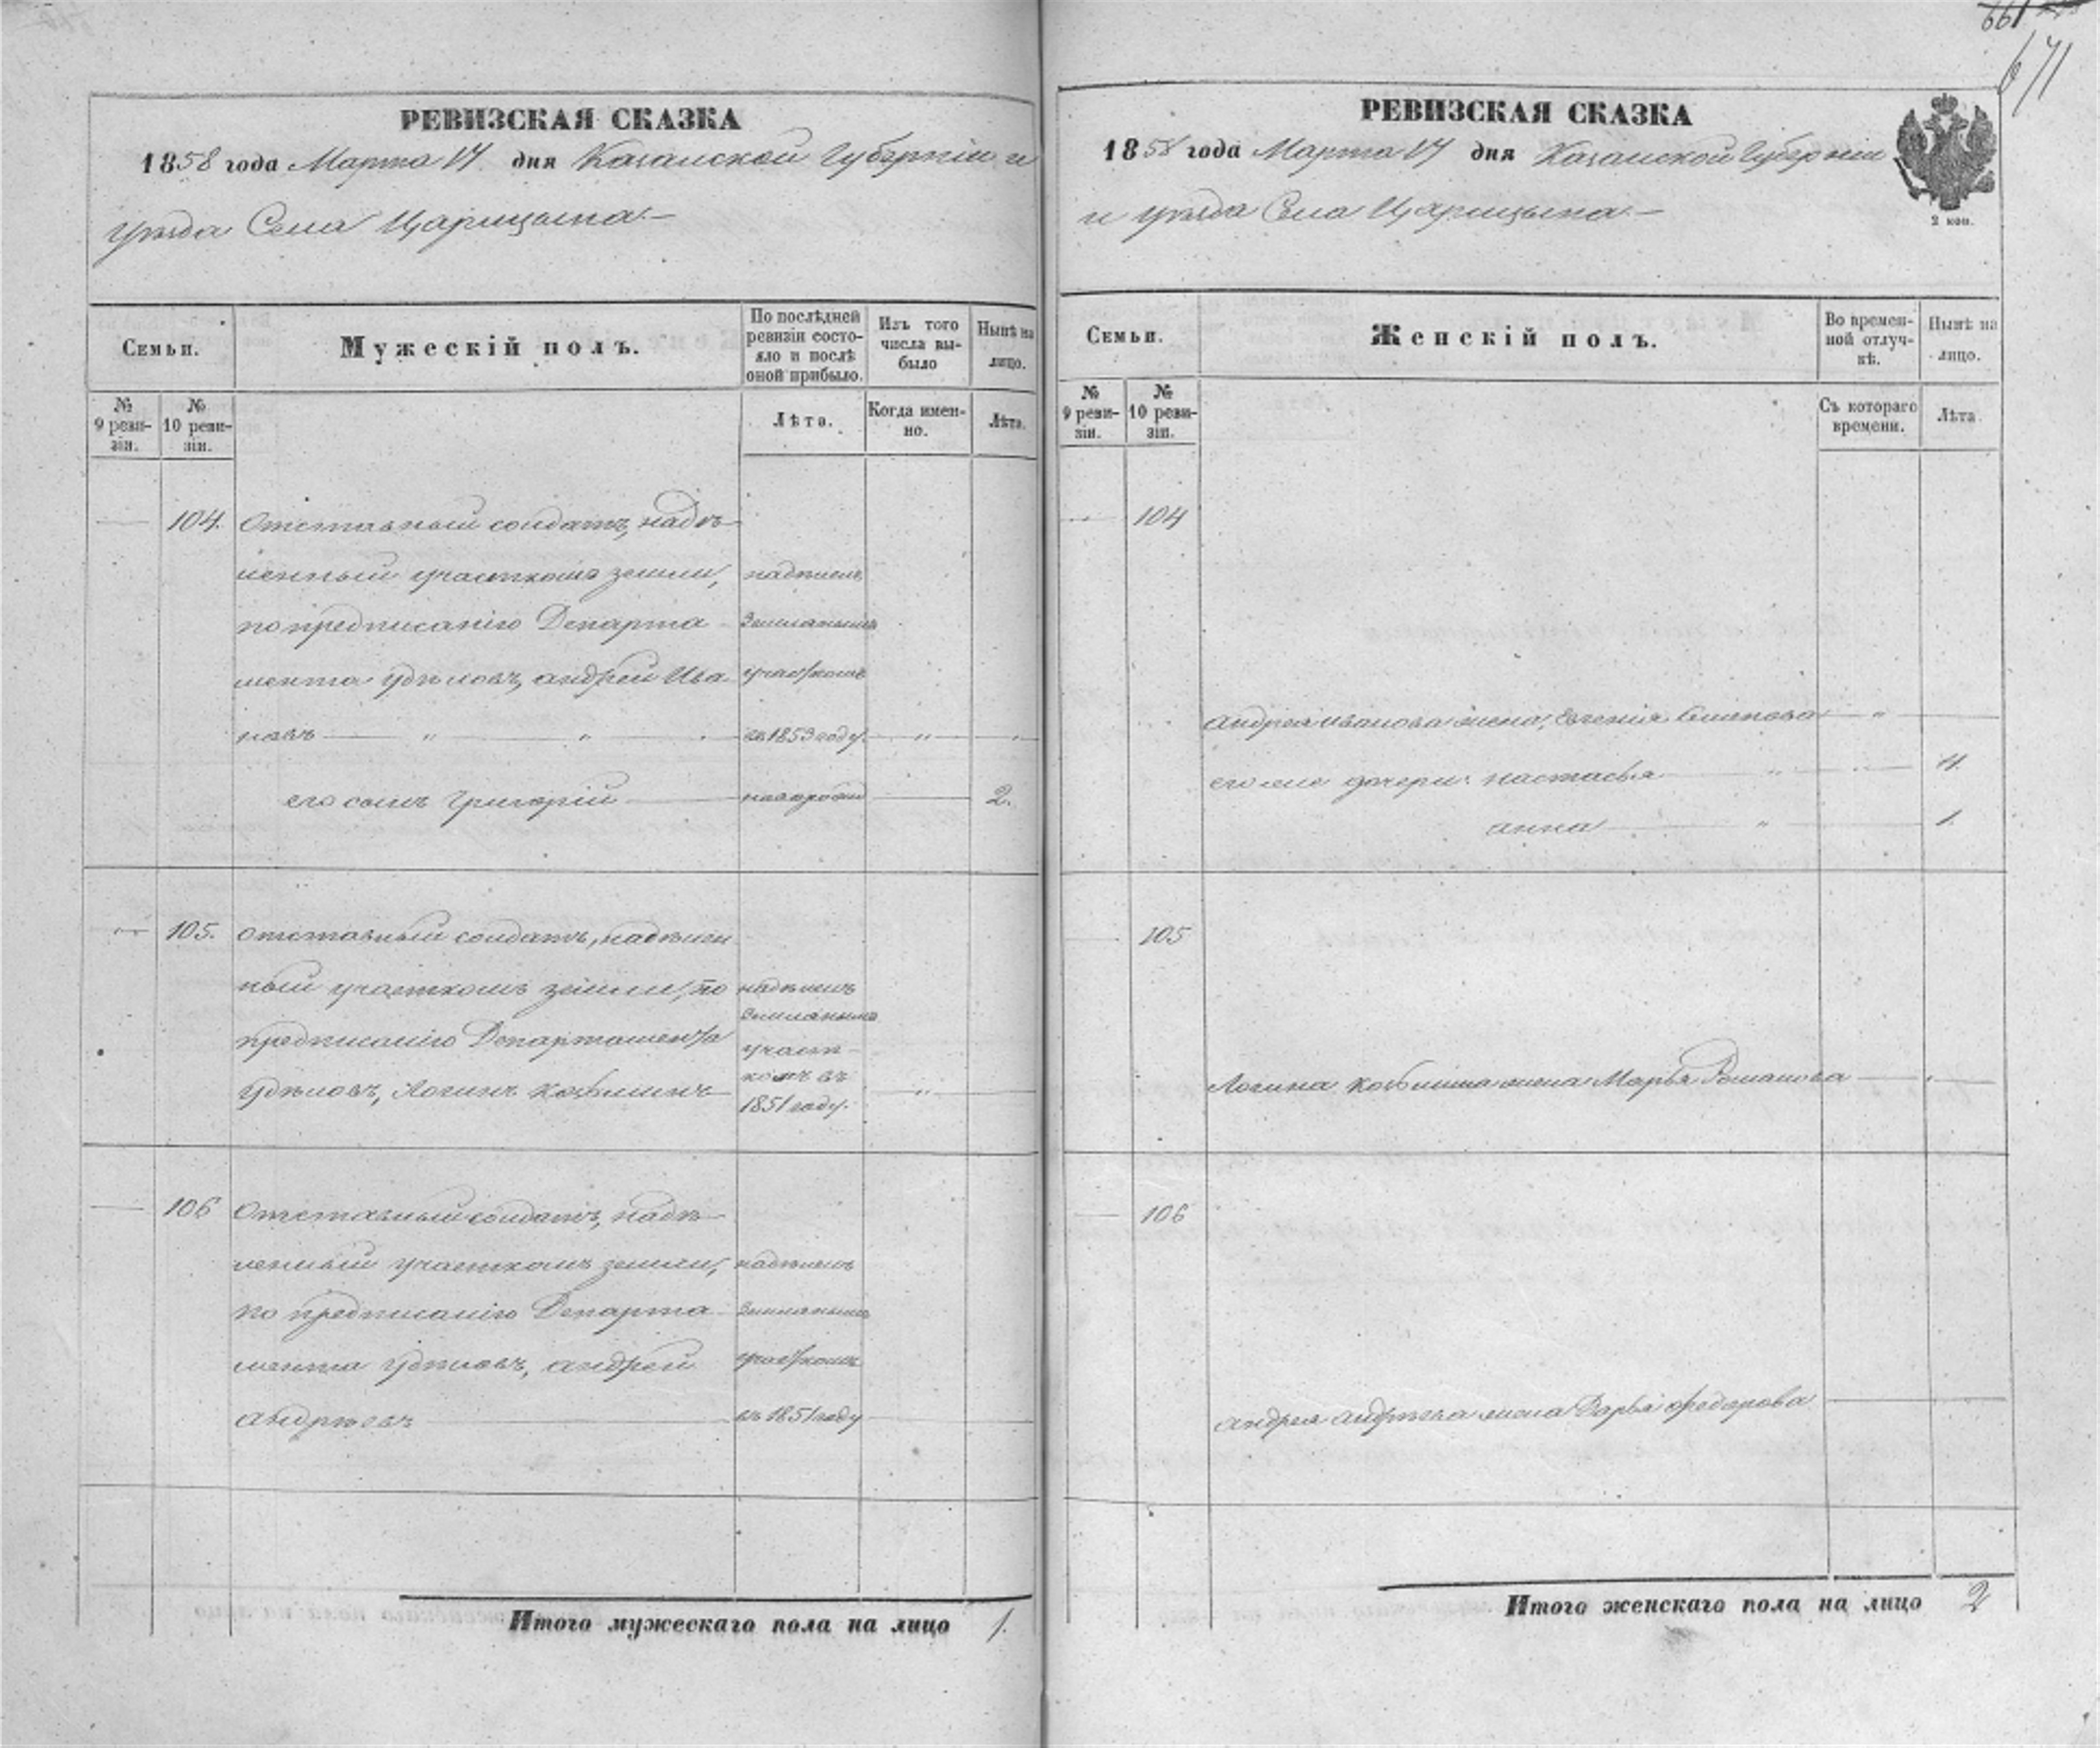 661
671
РЕВИЗСКАЯ СКАЗКА
1858 года Марта 17 дня Казанской Губерніи и
уѣзда Села Царицына.—
Семьи.
Мужескій полъ.
По послѣдней ревизіи состояло и послѣ оной прибыло.
Изъ того числа выбыло
Нынѣ на лицо.
№ 9 ревизіи.
№ 10 ревизіи.
Лѣта.
Когда именно.
Лѣта.
104. Отставный солдатъ, надѣ
ленный участкомъ земли, надѣленъ
по предписанію Департа Землянымъ
мента Удѣловъ, андрей Ива участкомъ
новъ — „ — „ — въ 1853 году. — „ —
его сынъ Григорій — новорожд — 2.
105. отставный солдатъ, надѣлен
ный участкомъ земли, по надѣленъ
Землянымъ
предписанію Департамента участ
Удѣловъ, Логинъ Козьминъ комъ въ
1851 году. — „ —
106 Отставный солдатъ, надѣ
ленный участкомъ земли, надѣленъ
по предписанію Департа Землянымъ
мента Удѣловъ, андрей участкомъ
андрѣевъ — въ 1851 году —
Итого мужескаго пола на лицо 1.
РЕВИЗСКАЯ СКАЗКА
1858 года Марта 17 дня Казанской Губерніи
и уѣзда Села Царицына.—
2 коп.
Семьи.
Женскій полъ.
Во временной отлучкѣ.
Нынѣ на лицо.
№ 9 ревизіи.
№ 10 ревизіи.
Съ котораго времени.
Лѣта
104
андрея иванова жена, Евгенія — „ —
его же дочери: настасья — „ — 11.
анна — „ — 1.
105
Логина козьмина жена Марья Романова —
106
андрея андрѣева жена Дарья Федорова —
Итого женскаго пола на лицо 2